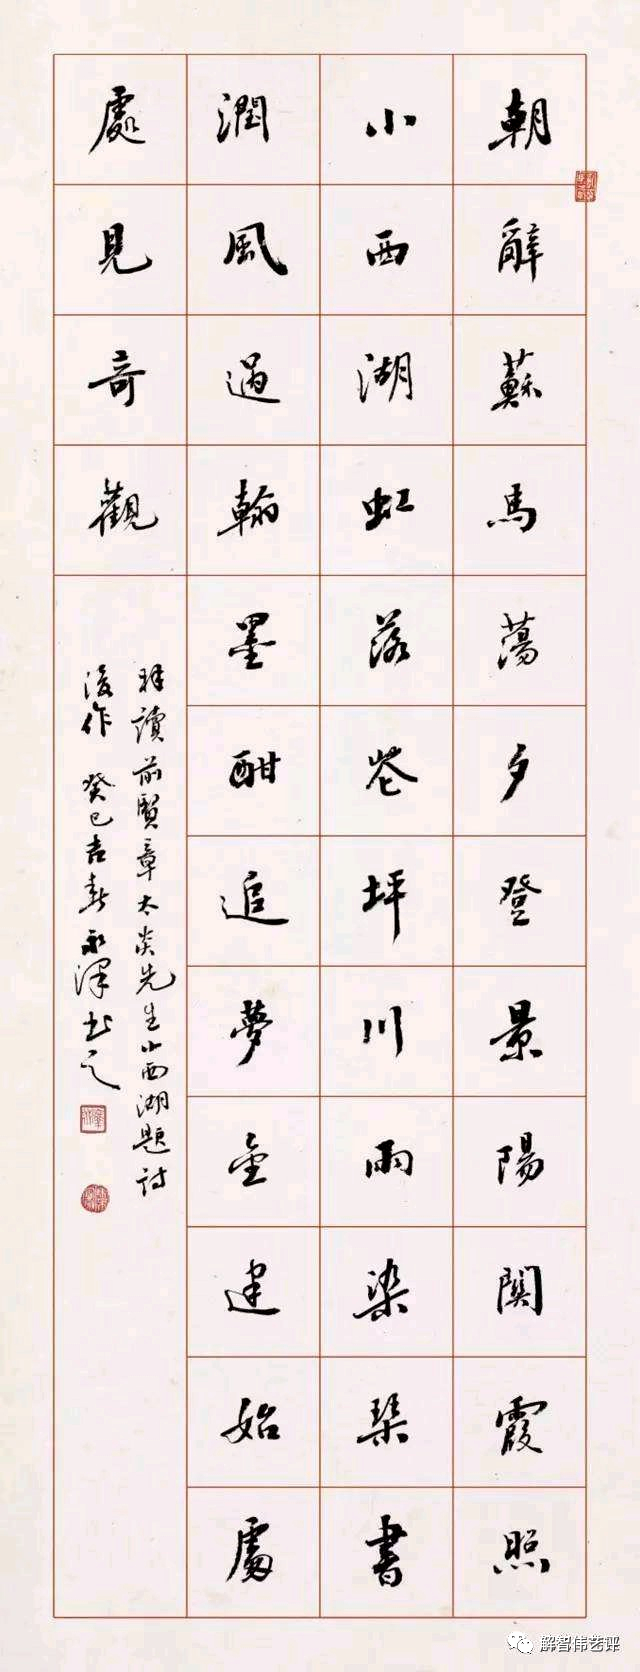 朝辭蘇馬蕩夕登景陽關霞照
小西湖虹落花坪川雨染琹書
潤風過翰墨酣追夢金建始處
處見奇觀
拜讀前賢章太炎先生小西湖題詩
後作 癸巳吉春永澤书之
解智伟艺评